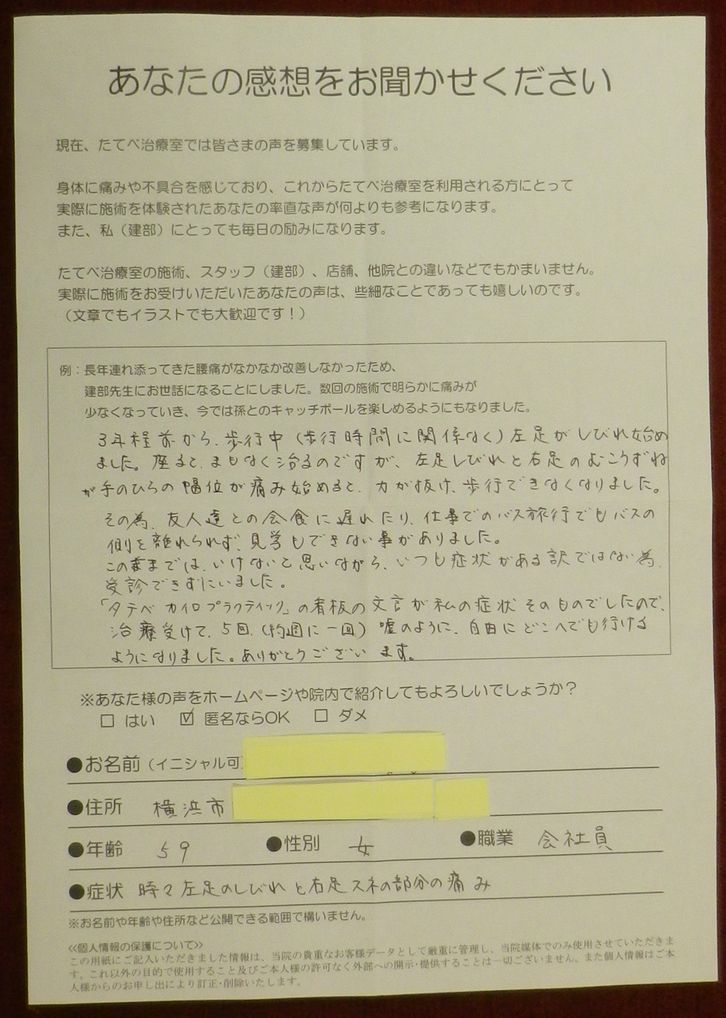 あなたの感想をお聞かせください
現在、たてべ治療室では皆さまの声を募集しています。
身体に痛みや不具合を感じており、これからたてべ治療室を利用される方にとって
実際に施術を体験されたあなたの率直な声が何よりも参考になります。
また、私（建部）にとっても毎日の励みになります。
たてべ治療室の施術、スタッフ（建部）、店舗、他院との違いなどでもかまいません。
実際に施術をお受けいただいたあなたの声は、些細なことであっても嬉しいのです。
（文章でもイラストでも大歓迎です！）
例：長年連れ添ってきた腰痛がなかなか改善しなかったため、
建部先生にお世話になることにしました。数回の施術で明らかに痛みが
少なくなっていき、今では孫とのキャッチボールを楽しめるようにもなりました。
3年程前から、歩行中（歩行時間に関係なく）左足がしびれ始め
ました。座ると、まもなく治るのですが、左足しびれと右足のむこうずね
が手のひらの幅位が痛み始めると、力が抜け、歩行できなくなりました。
その為、友人達との会食に遅れたり、仕事でのバス旅行でもバスの
側を離れられず、見学もできない事がありました。
このままでは、いけないと思いながら、いつも症状がある訳ではない為、
受診できずにいました。
「タテベカイロプラクティック」の看板の文言が私の症状そのものでしたので、
治療受けて、5回、（約週に一回）嘘のように、自由にどこへでも行ける
ようになりました。ありがとうございます。
※あなた様の声をホームページや院内で紹介してもよろしいでしょうか？
□ はい ☑ 匿名ならOK □ ダメ
●お名前（イニシャル可
●住所 横浜市
●年齢 59 ●性別 女 ●職業 会社員
●症状 時々左足のしびれと右足スネの部分の痛み
※お名前や年齢や住所など公開できる範囲で構いません。
≪個人情報の保護について≫
この用紙にご記入いただきました情報は、当院の貴重なお客様データとして厳重に管理し、当院媒体でのみ使用させていただきま
す。これ以外の目的で使用すること及びご本人様の許可なく外部への開示・提供することは一切ございません。また個人情報はご本
人様からのお申し出により訂正・削除いたします。